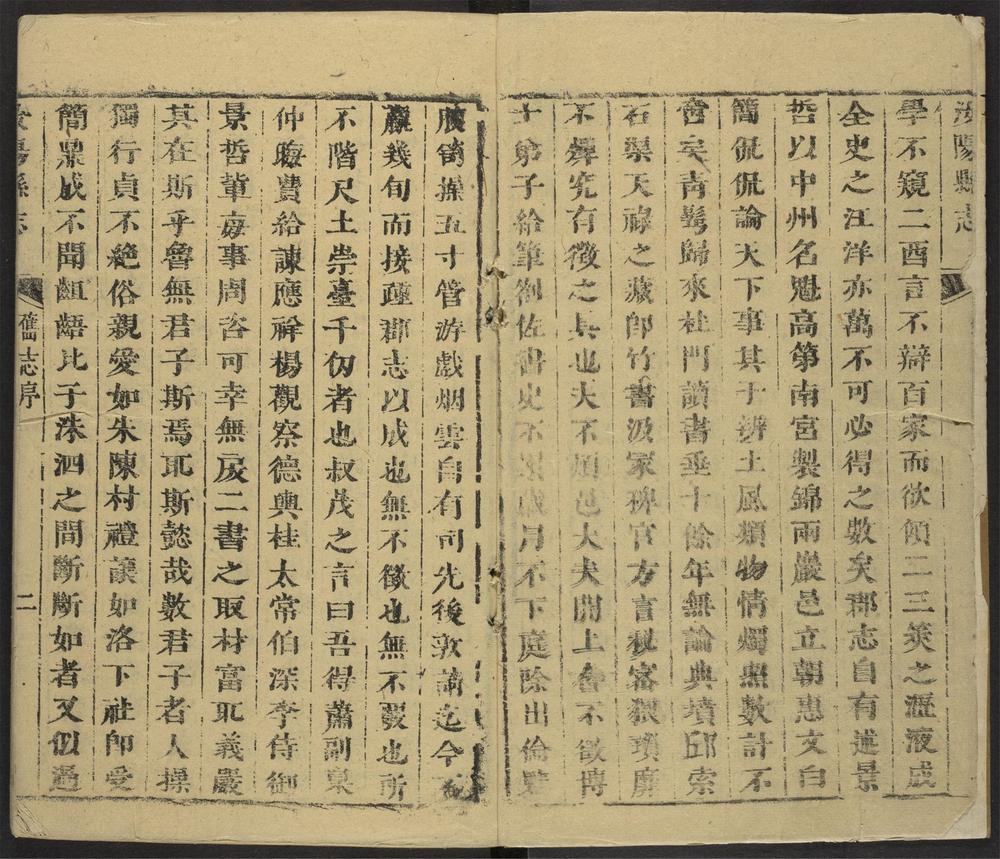 汝陽縣志
學不窺二酉言不辯百家而欲傾二三筴之瀝液成
全史之汪洋亦萬不可必得之數矣郡志自有遂景
哲以中州名魁高第南宮製錦兩巖邑立朝惠文白
簡侃侃論天下事其于辨土風類物情燭照數計不
啻矣青髩歸來杜門讀書垂十餘年無論典墳邱索
石渠天祿之藏卽竹書汲冢稗官方言秘密猥瑣靡
不殫究有徵之具也夫不煩邑大夫開上舍不欲博
士弟子給筆劄佐書史不累歲月不下庭除出倫
篋筒操五寸管游戲烟雲自有司先後敦請迄今
覊幾旬而接踵郡志以成也無不徵也無不覈也所
不階尺土崇臺千仞者也叔茂之言曰吾得蕭副臬
仲晦費給諫應觧楊觀察德輿桂太常伯深李侍御
景哲輩每事周咨可幸無戾二書之取材富耴義嚴
其在斯乎魯無君子斯焉耴斯懿哉數君子者人操
獨行貞不絶俗親愛如朱陳村禮讓如洛下社卽受
簡鼎成不聞齟齬比于洙泗之間斷斷如者又似過
汝陽縣志
舊志序
二